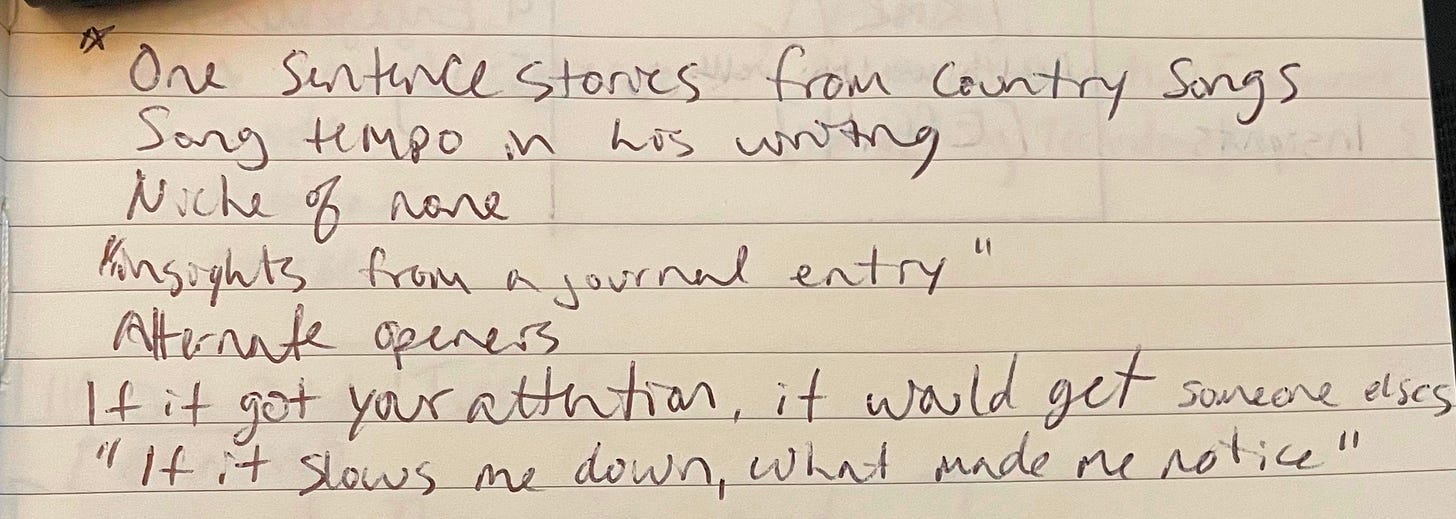 One Sentence Stories from Country Songs
Song tempo in his writing
Niche of none
"Insights from a journal entry"
Alternate openers
If it got your attention, it would get someone elses
"If it slows me down, what made me notice"